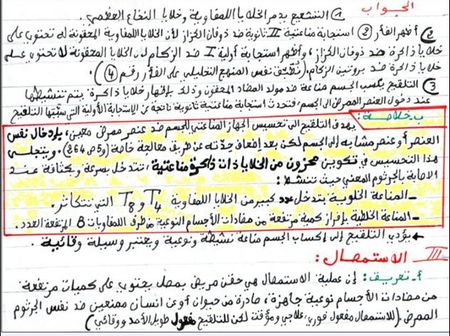 الجواب
① التشعيع يدمر الخلايا اللمفاوية وخلايا النخاع العظمي.
② أظهر الفأر ② استجابة مناعية II ثانوية ضد ذوفان الكزاز لأن الخلايا اللمفاوية المحقونة له تحتوي على
خلايا ذاكرة ضد ذوفان الكزاز، وأظهر استجابة أولية I ضد الزكام لأن الخلايا المحقونة له لا تحتوي على
خلايا ذاكرة ضد بروتين الزكام. (نطبق نفس المنهج التحليلي على الفأر رقم ④)
③ التلقيح يكسب الجسم مناعة ضد مولد المضاد المحقون وذلك بإظهار خلايا ذاكرة يتم تنشيطها
عند دخول العنصر الممرض إلى الجسم، فتحدث استجابة مناعية ثانوية ناتجة عن الإستجابة الأولية التي سببها التلقيح
بخلاصة: يهدف التلقيح إلى تحسيس الجهاز المناعتي للجسم ضد عنصر ممرض معين، بإدخال نفس
العنصر أو عنصر مشابه إلى الجسم لكن بعد إضعاف حدته عن طرق معالجة خاصة ، ويتجلى
هذا التحسيس في تكوين مخزون من الخلايا ذات ذاكرة مناعتية، تتدخل بسرعة وبكثافة عند
الاصابة بالجرثوم المعني حيث تنشط:
ـ المناعة الخلوية بتدخل عدد كبير من الخلايا اللمفاوية T4 و T8 التي تتكاثر.
ـ المناعة الخلطية بإفراز كمية مرتفعة من مضادات الأجسام النوعية من طرف اللمفاويات B المرتفعة العدد.
يؤدي التلقيح إلى إكساب الجسم مناعة نشيطة ونوعية ويعتبر وسيلة وقائية.
III الاستمصال:
أ ـ تعريف: إن عملية الاستمصال هي حقن مريض بمصل يحتوي على كميات مرتفعة
من مضادات الأجسام نوعية جاهزة، صادرة من حيوان أو عن انسان ممنعين ضد نفس الجرثوم
الممرض (للاستمصال مفعول فوري علاجي ومؤقت لكن للتلقيح مفعول طويل الأمد ووقائي)